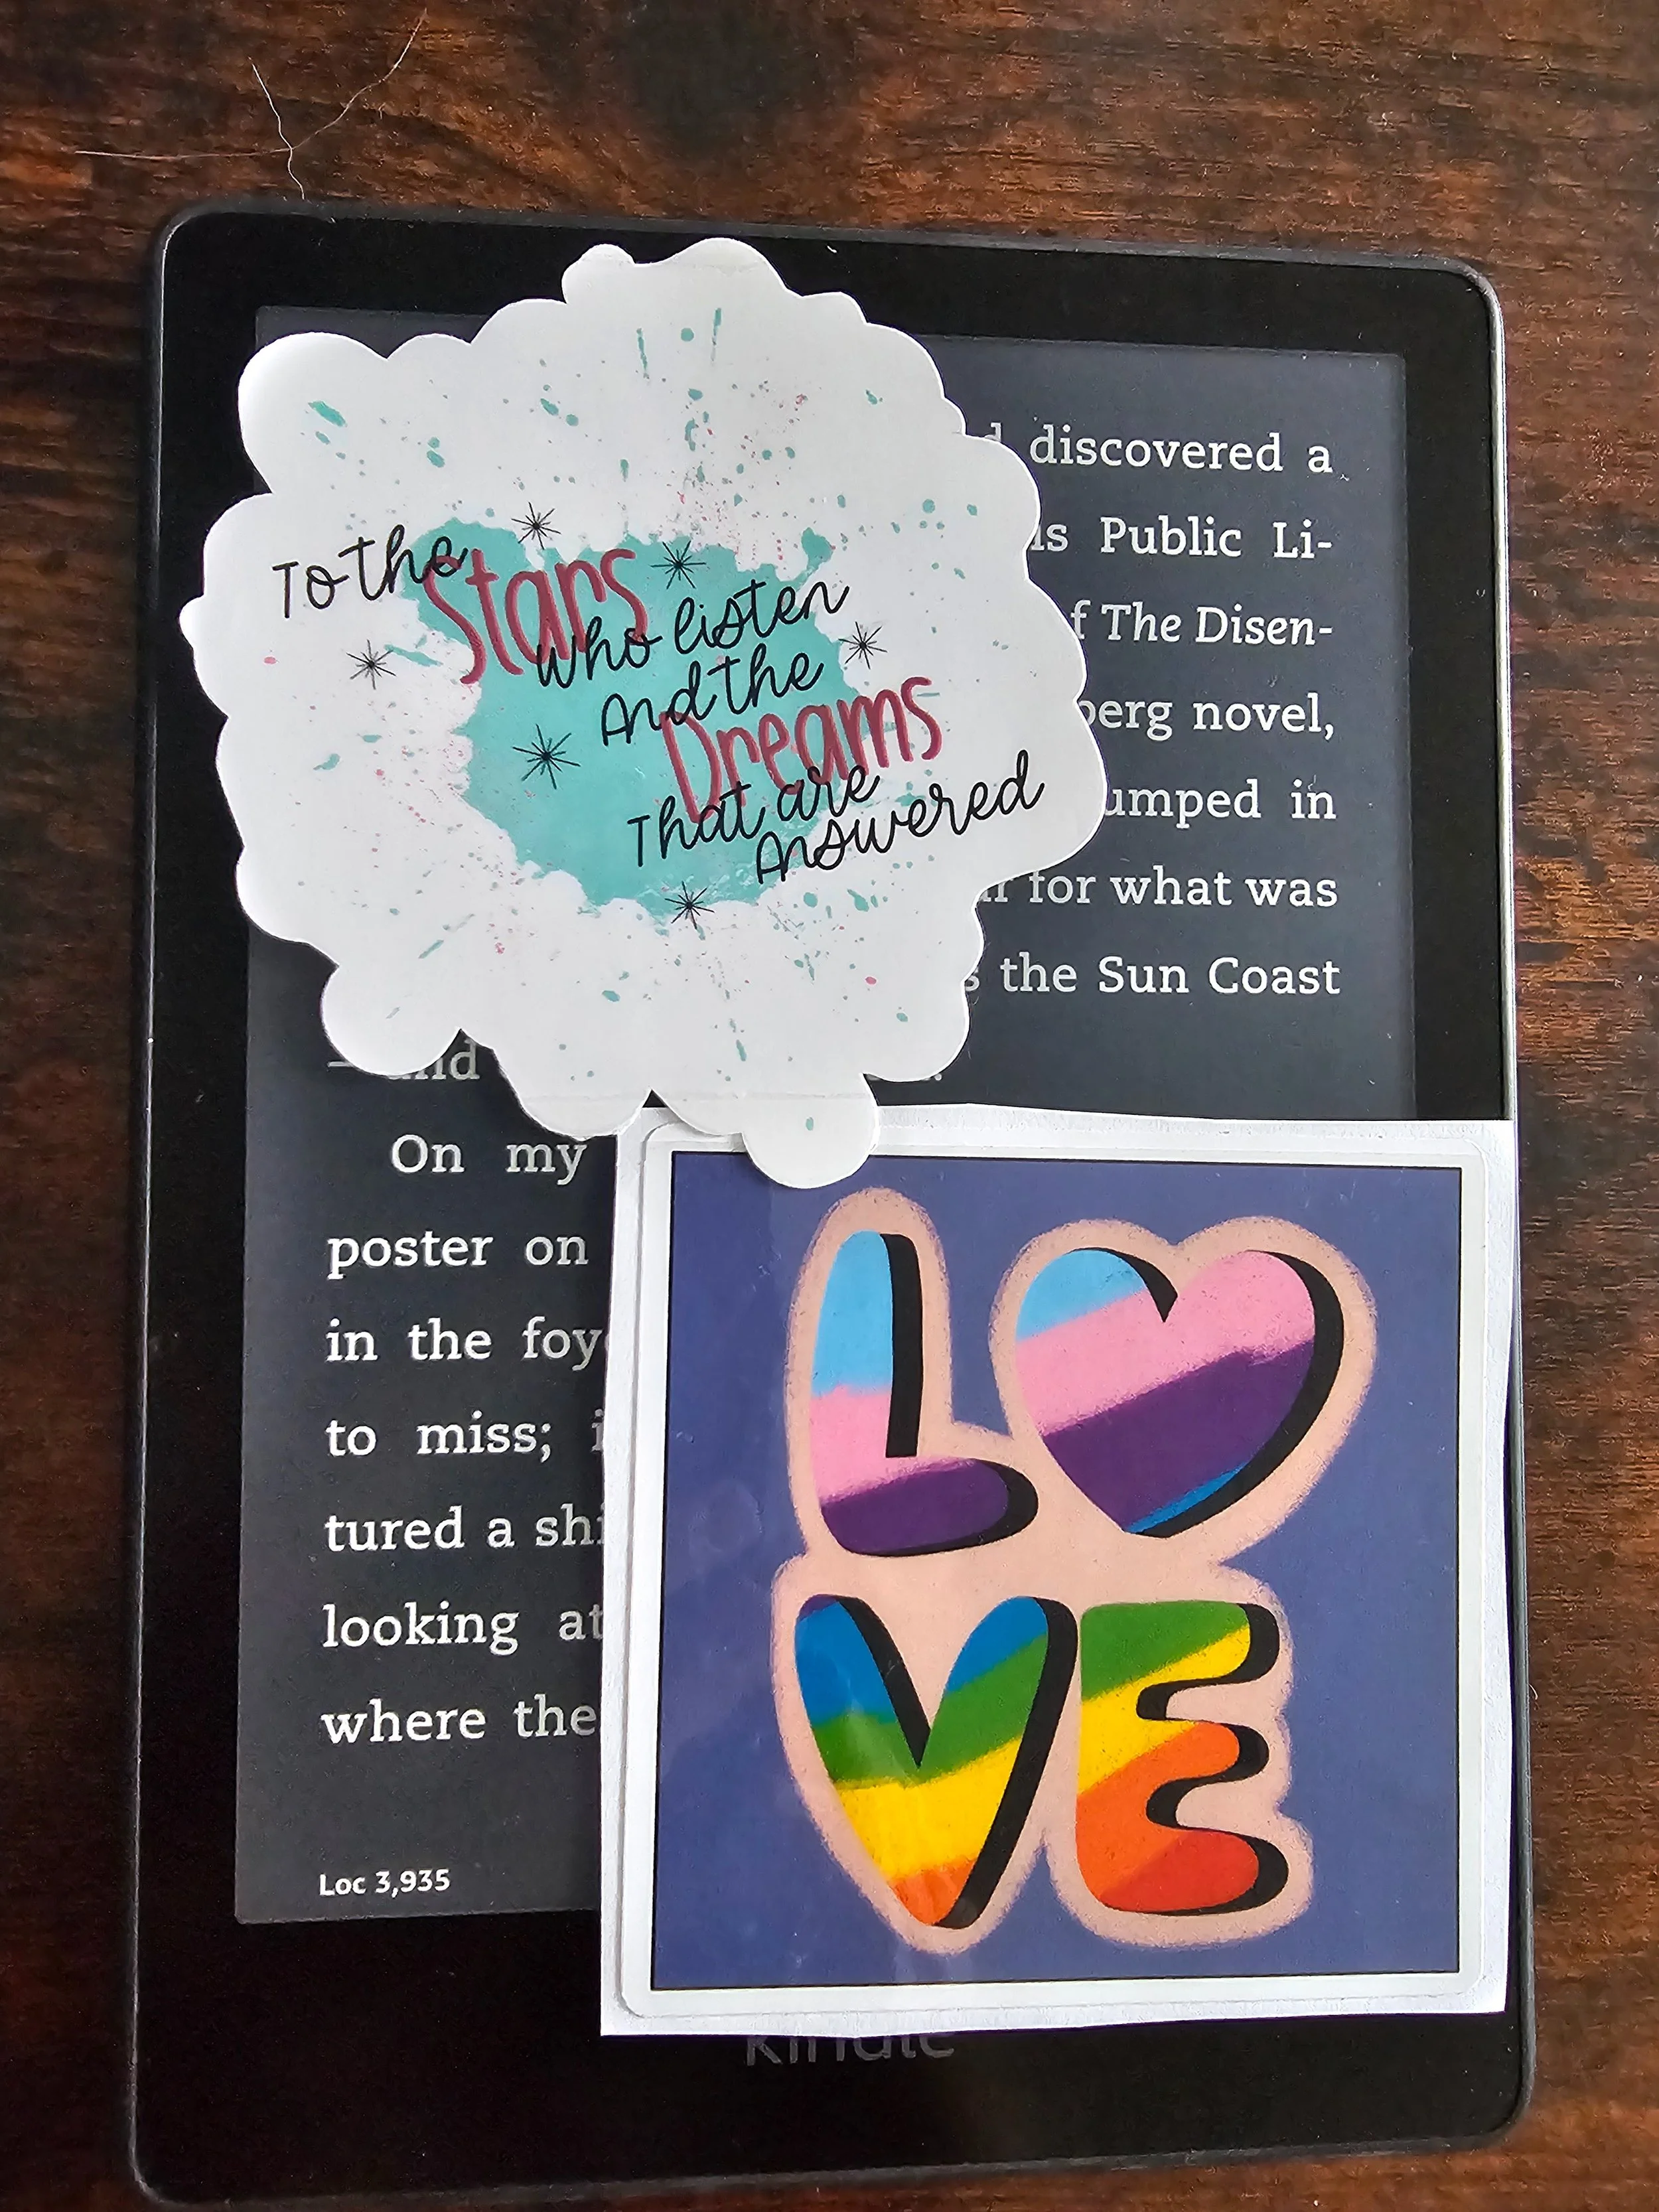 To the
Stars
who listen
And the
Dreams
That are
Answered
discovered a
Public Li-
The Disen-
novel,
in
for what was
the Sun Coast
On my
poster on
in the
to miss;
tured a
looking at
where the
Loc 3,935
LOVE
kindle